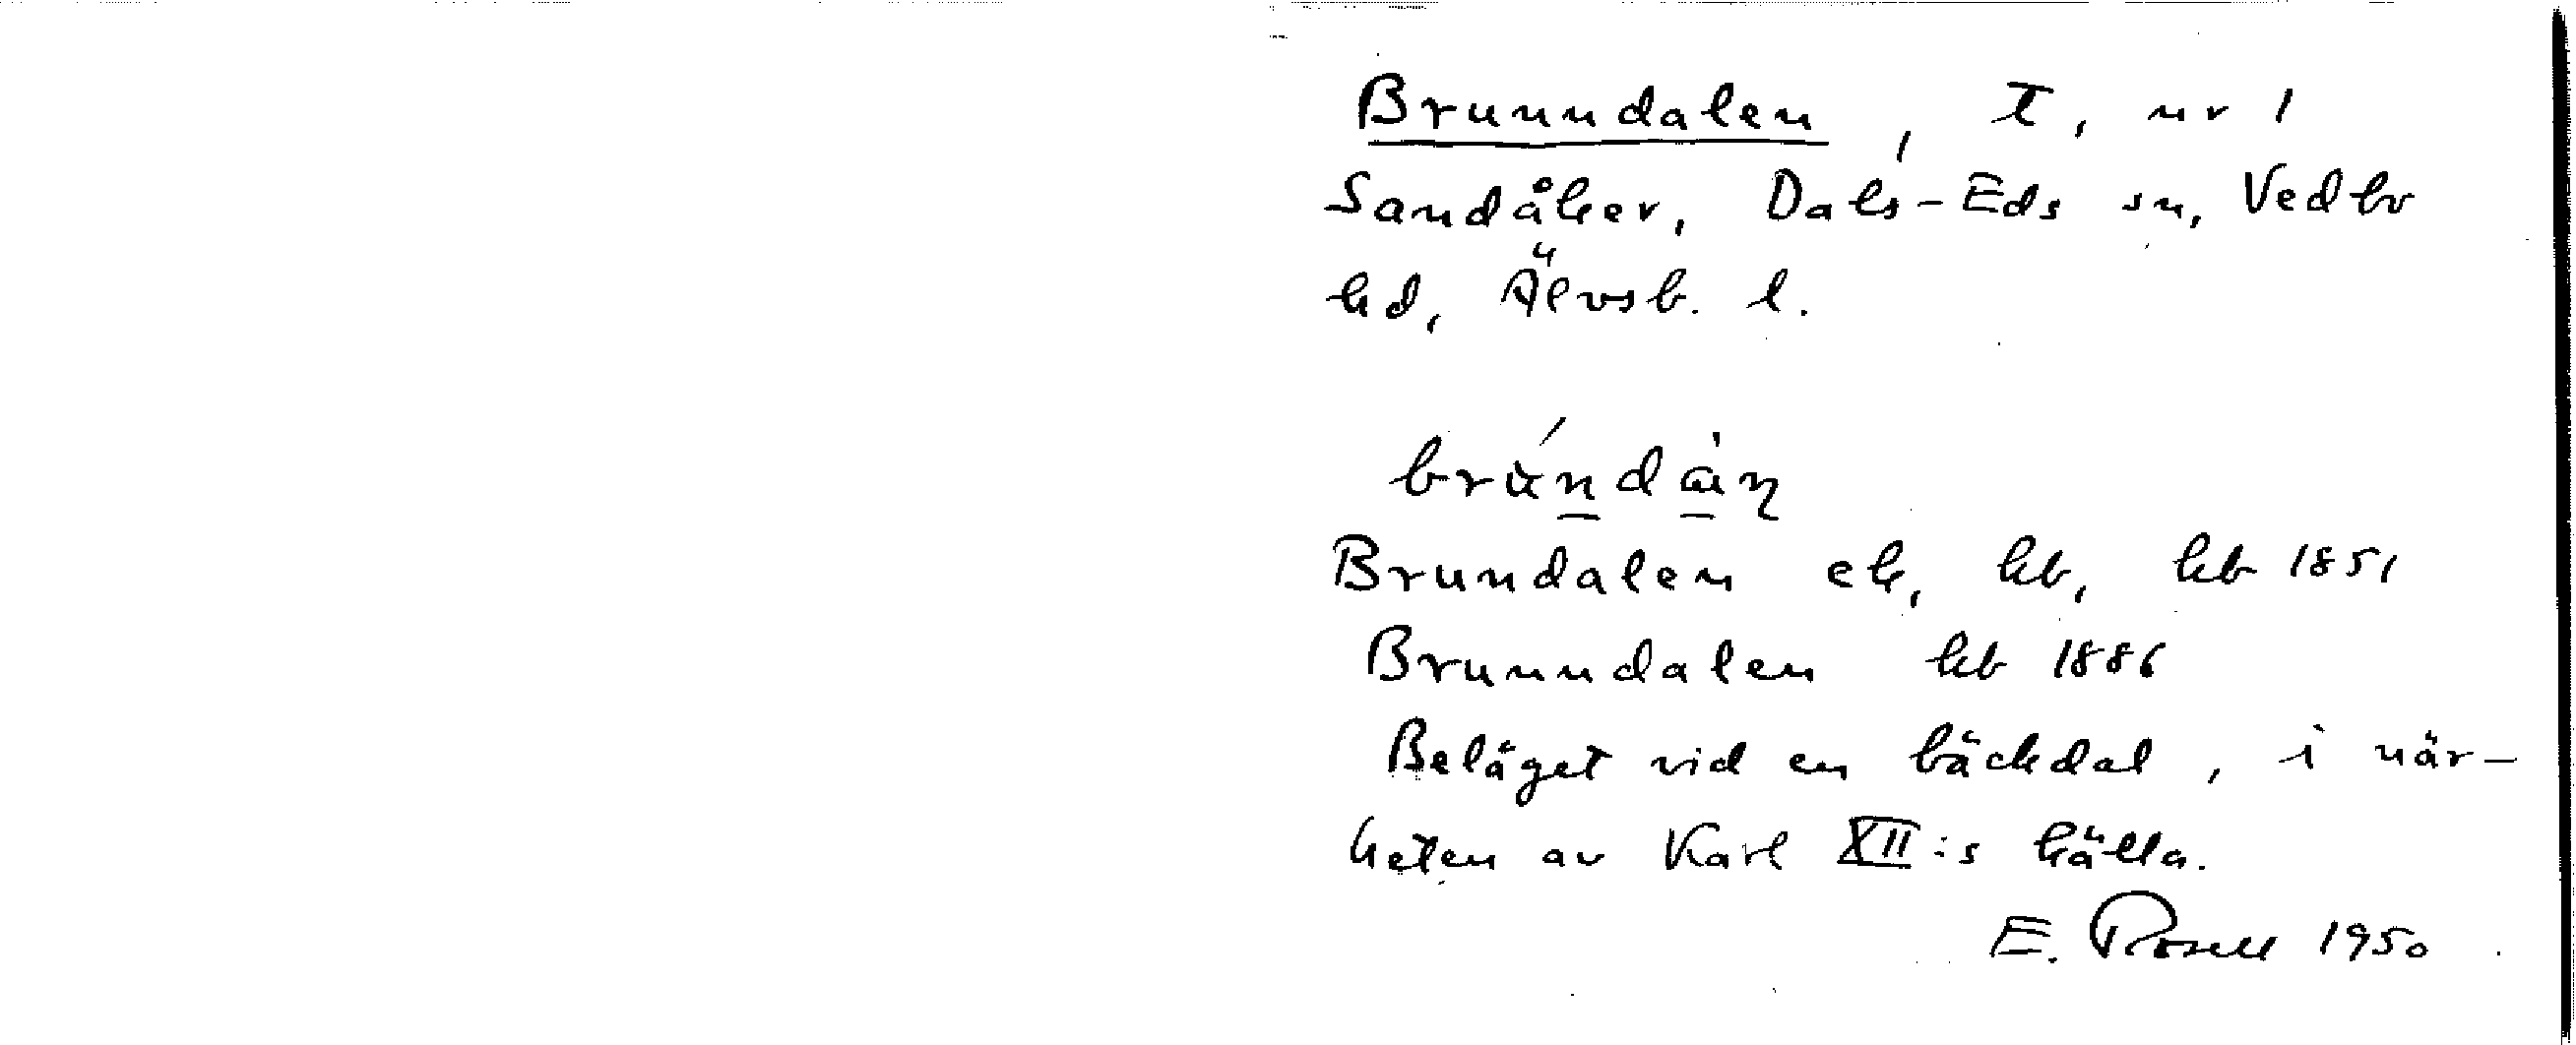 Brunndalen, T, nr 1
Sandåker, Dals-Eds sn, Vedbo
hd, Älvsb. l.
Brundalen ek, kb, hb 1851
Brunndalen hb 1886
Beläget vid en bäckdal, i när-
heten av Karl XII:s källa.
E. Rosell 1950